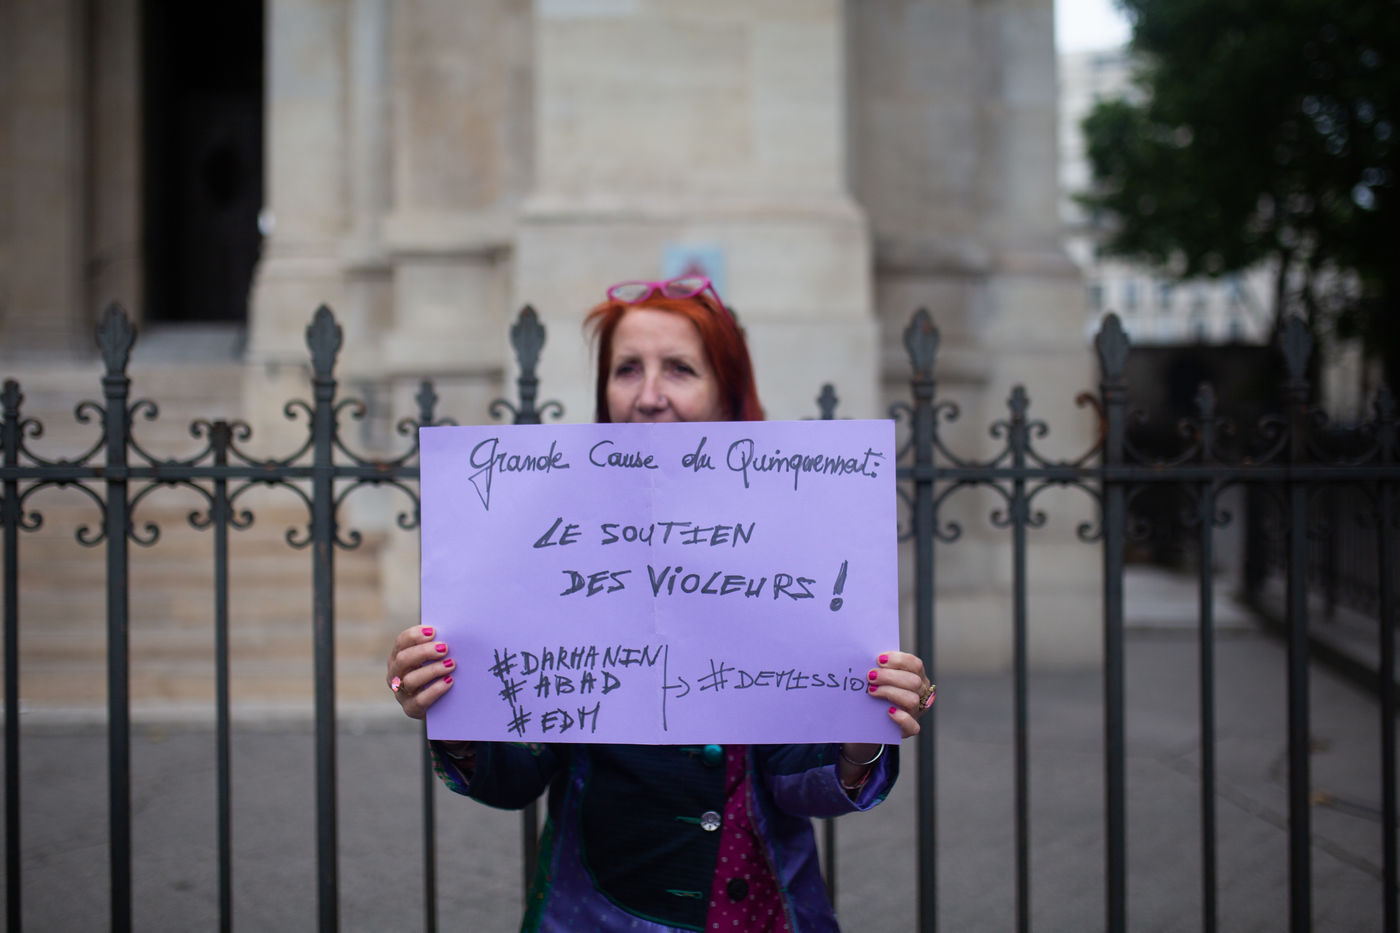 Grande Cause du Quinquennat:
LE SOUTIEN
DES VIOLEURS !
#DARMANIN
#ABAD → #DEMISSION
#EDM